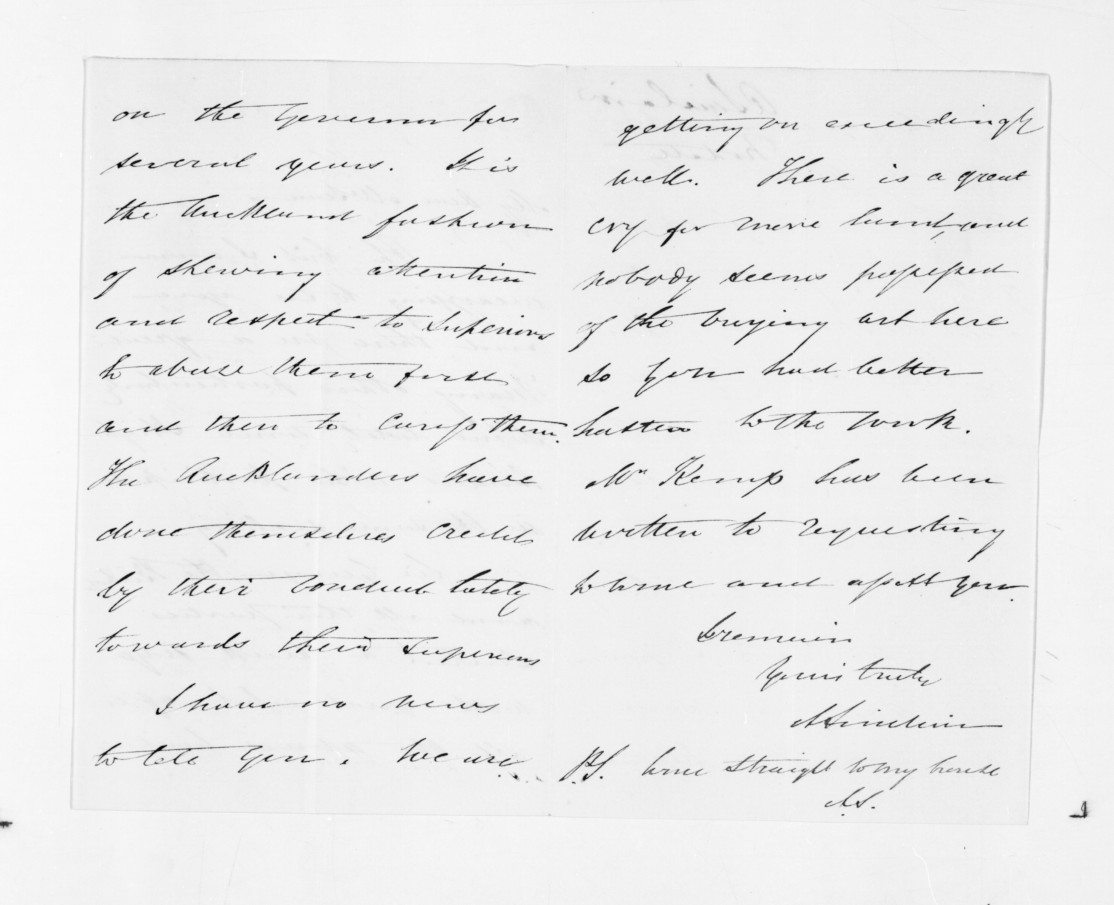 on the Governor for
several years. It is
the Auckland fashion
of shewing attention
and respect to Superiors
to abuse them first
and then to
The Aucklanders have
done themselves credit
by their conduct lately
towards their Superiors
I have no news
to tell you. We are
getting on exceedingly
well. There is a great
cry for more land, and
nobody seems possessed
of the buying art here
so you had better
hasten to the work.
Mr Kemp has been
written to requesting
to come and assist you.
I remain
Yours truly
A Sinclair
P.S. Come straight to my house
A.S.